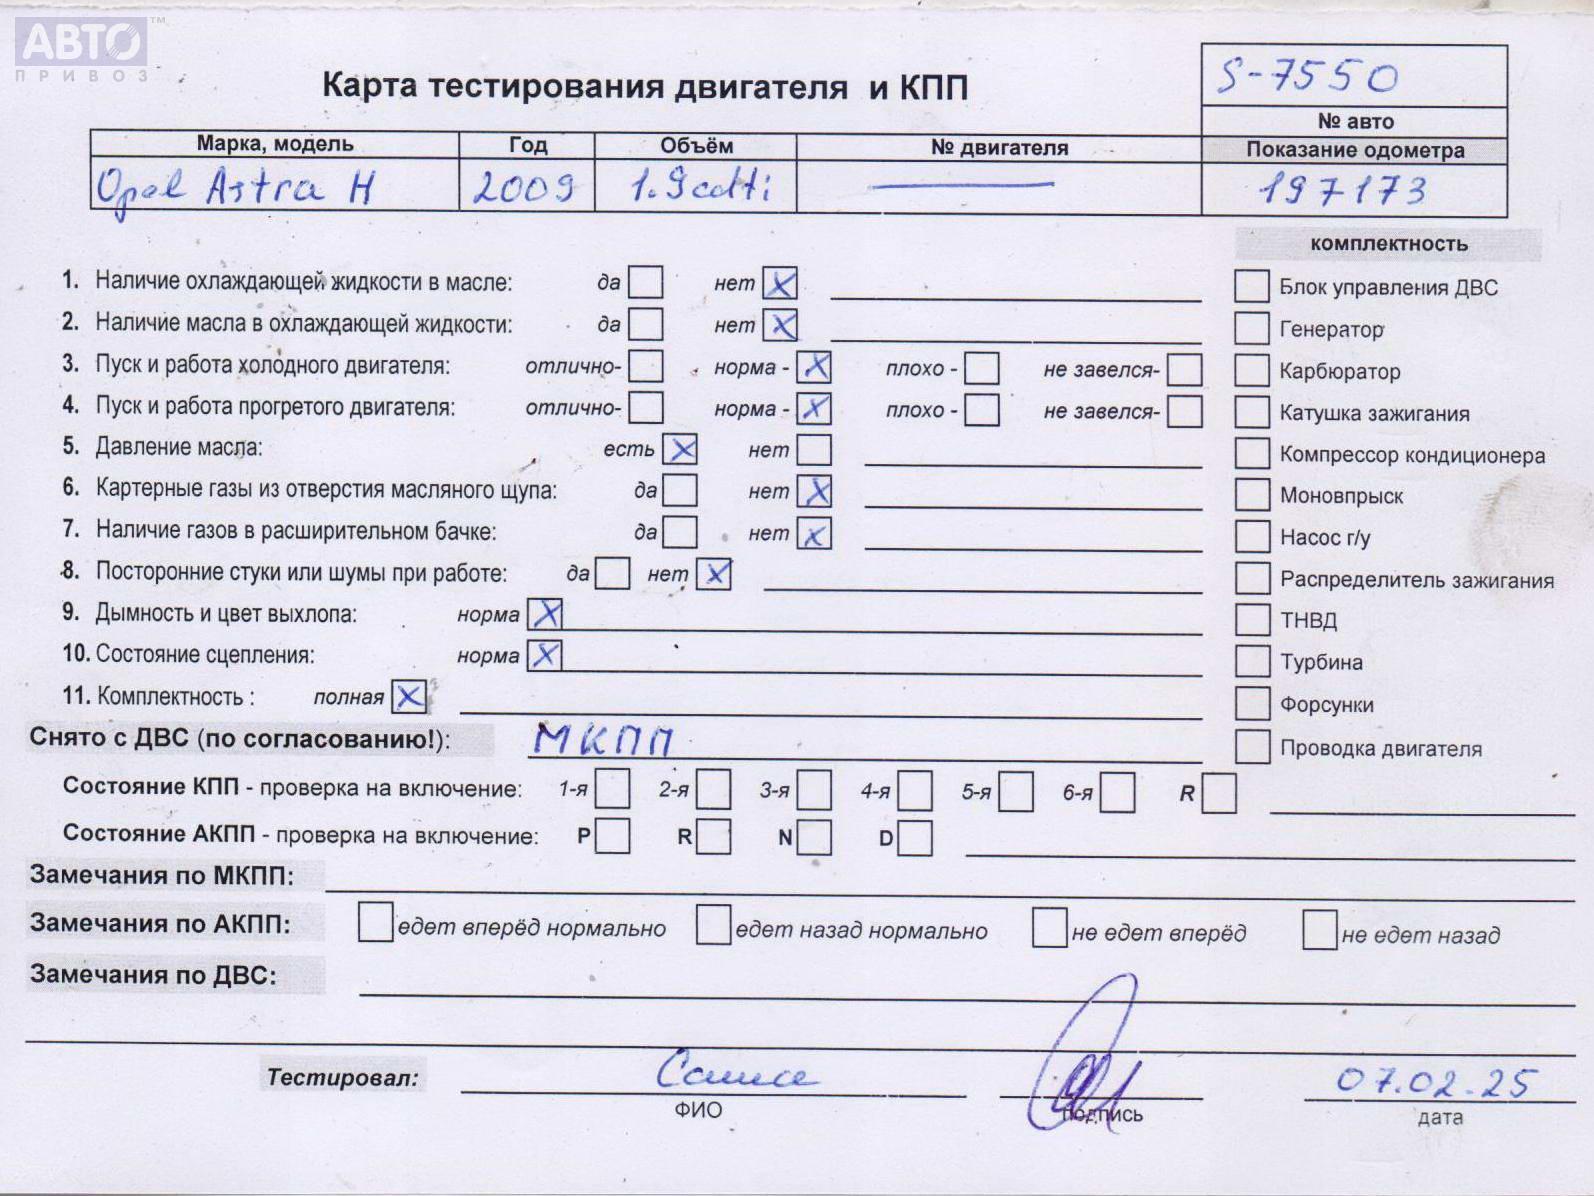 АВТО™
ПРИВОЗ
Карта тестирования двигателя и КПП
S-7550
№ авто
Марка, модель Год Объём № двигателя Показание одометра
Opel Astra H 2009 1.9cdti — 197173
комплектность
1. Наличие охлаждающей жидкости в масле: да нет X
Блок управления ДВС
2. Наличие масла в охлаждающей жидкости: да нет X
Генератор
3. Пуск и работа холодного двигателя: отлично- норма - X плохо - не завелся-
Карбюратор
4. Пуск и работа прогретого двигателя: отлично- норма - X плохо - не завелся-
Катушка зажигания
5. Давление масла: есть X нет
Компрессор кондиционера
6. Картерные газы из отверстия масляного щупа: да нет X
Моновпрыск
7. Наличие газов в расширительном бачке: да нет X
Насос г/у
8. Посторонние стуки или шумы при работе: да нет X
Распределитель зажигания
9. Дымность и цвет выхлопа: норма X
ТНВД
10. Состояние сцепления: норма X
Турбина
11. Комплектность : полная X
Форсунки
Снято с ДВС (по согласованию!): МКПП
Проводка двигателя
Состояние КПП - проверка на включение: 1-я 2-я 3-я 4-я 5-я 6-я R
Состояние АКПП - проверка на включение: P R N D
Замечания по МКПП:
Замечания по АКПП: едет вперёд нормально едет назад нормально не едет вперёд не едет назад
Замечания по ДВС:
Тестировал: Саша 07.02.25
ФИО подпись дата